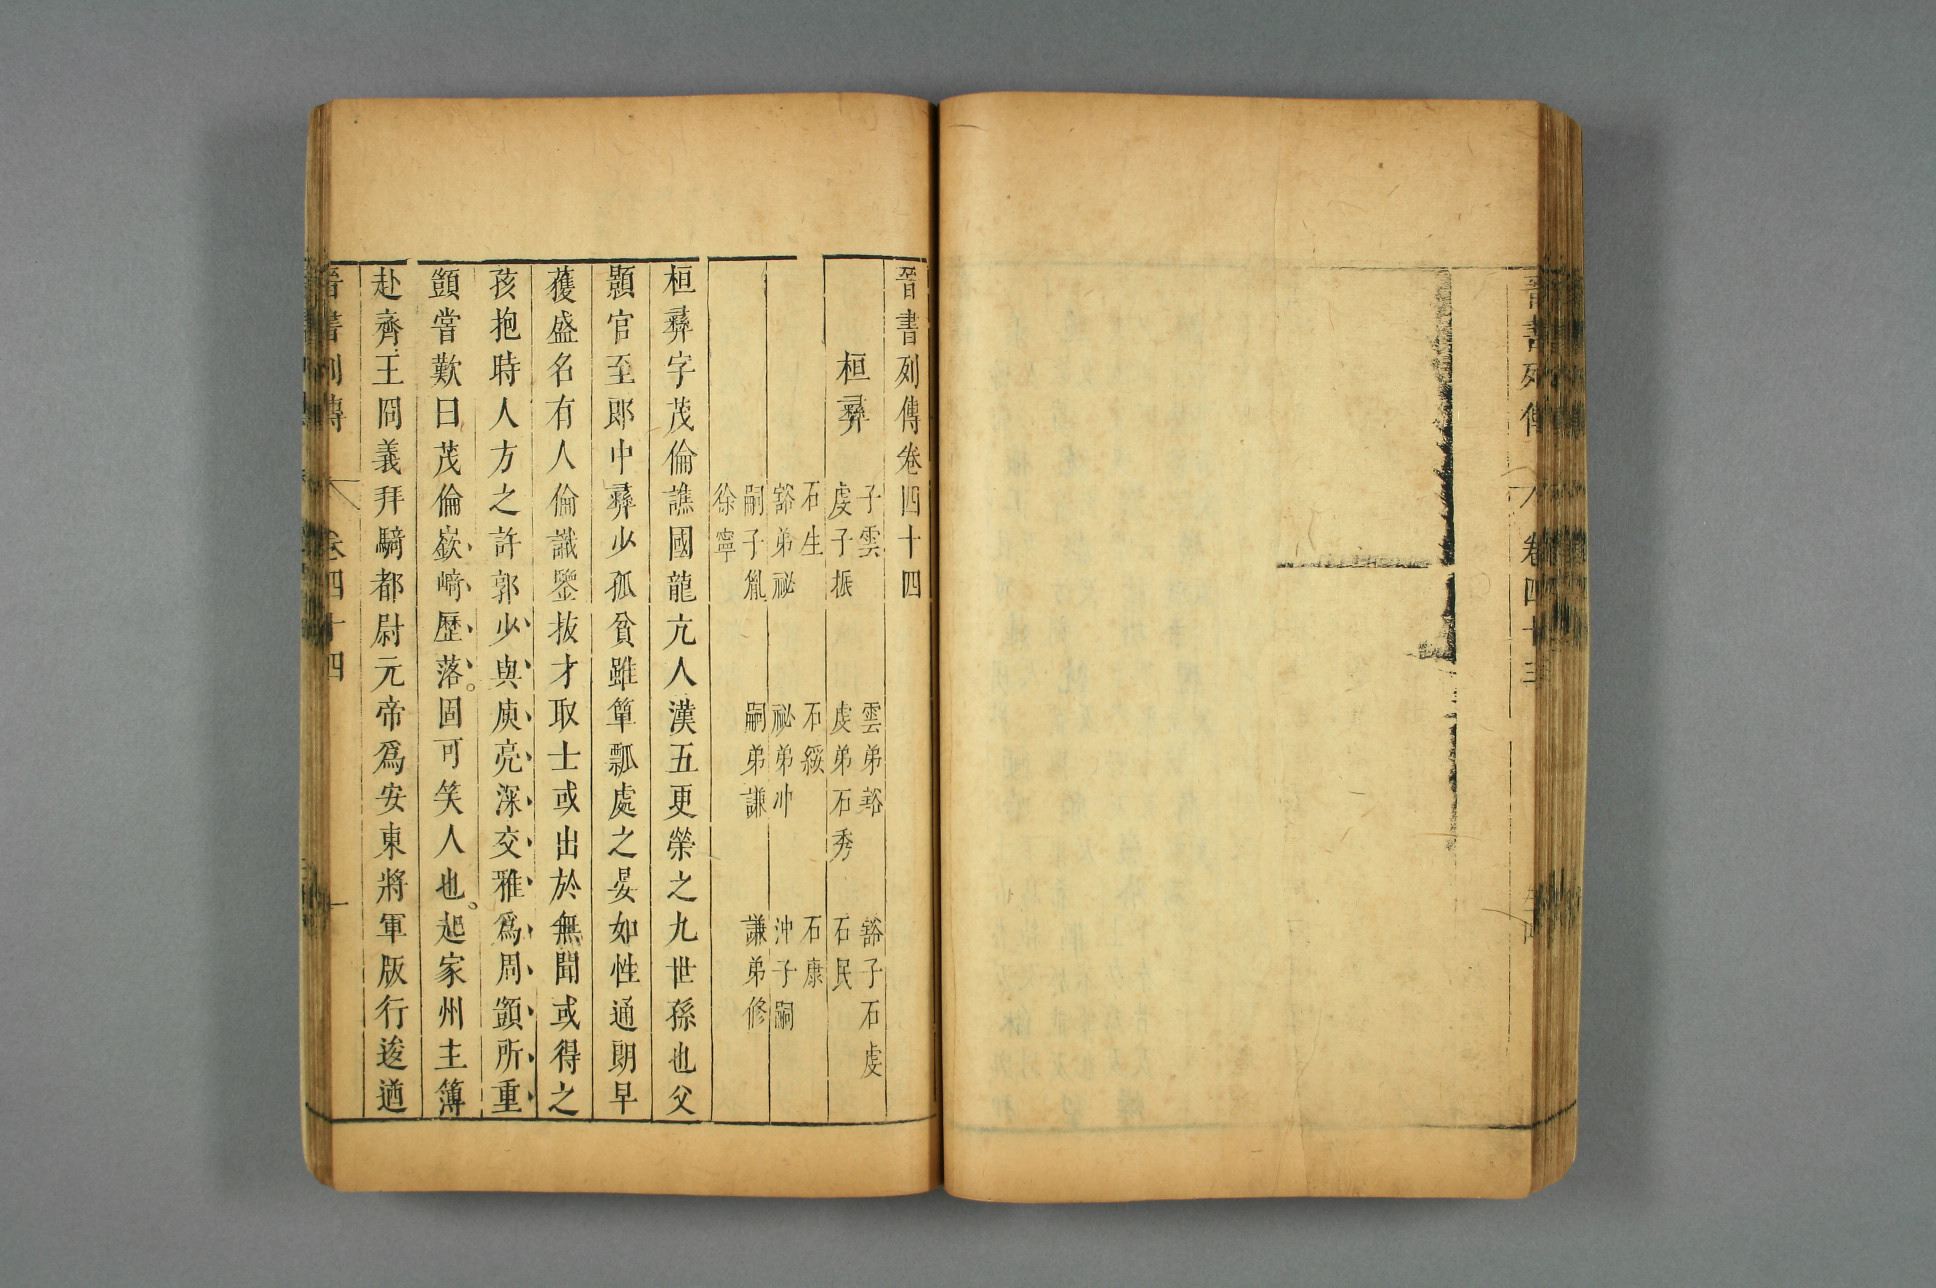 晉書列傳 卷四十三
晉書列傳卷四十四
桓彝
子雲 雲弟豁 豁子石虔
虔子振 虔弟石秀 石民
石生 石綏 石康
豁弟祕 祕弟冲 沖子嗣
嗣子胤 嗣弟謙 謙弟修
徐寧
桓彝字茂倫譙國龍亢人漢五更榮之九世孫也父
顥官至郎中彝少孤貧雖簞瓢處之晏如性通朗早
獲盛名有人倫識鑒拔才取士或出於無聞或得之
孩抱時人方之許郭少與庾亮深交雅爲周顗所重
顗嘗歎曰茂倫嶔﨑歷落。固可笑人也。起家州主簿
赴齊王冏義拜騎都尉元帝爲安東將軍版行逡遒
晉書列傳 卷四十四 一